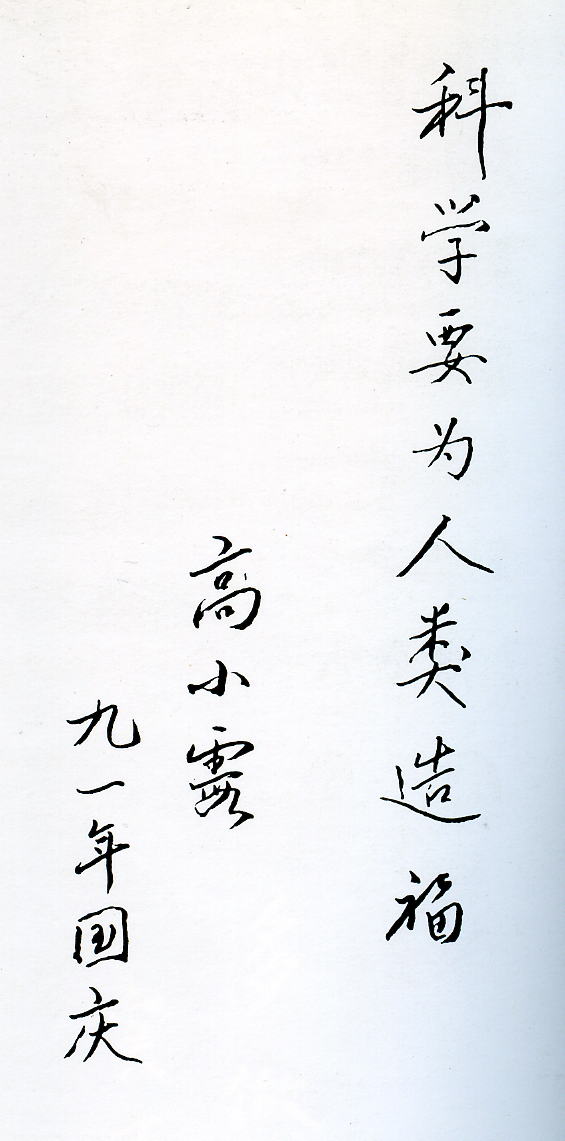 科学要为人类造福
高小霞
九一年国庆